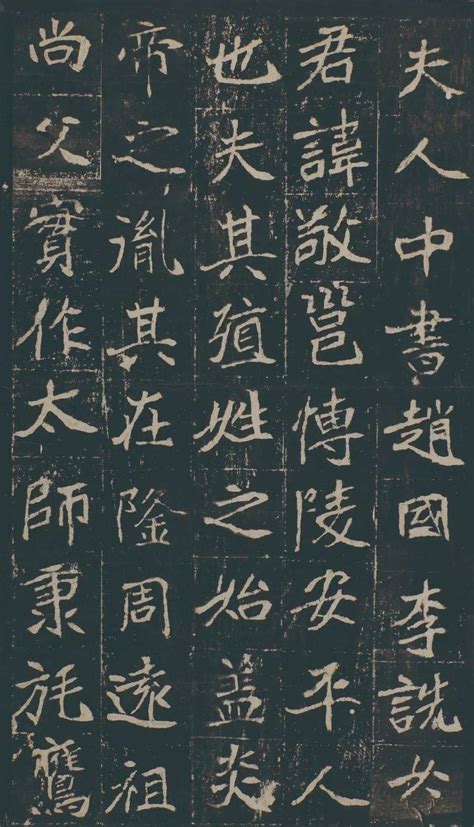 夫人中書趙國李詵女
君諱敬邕愽陵安平人
也夫其殖姓之始盖炎
帝之胤其在隆周遠祖
尚父實作太師秉旄鷹